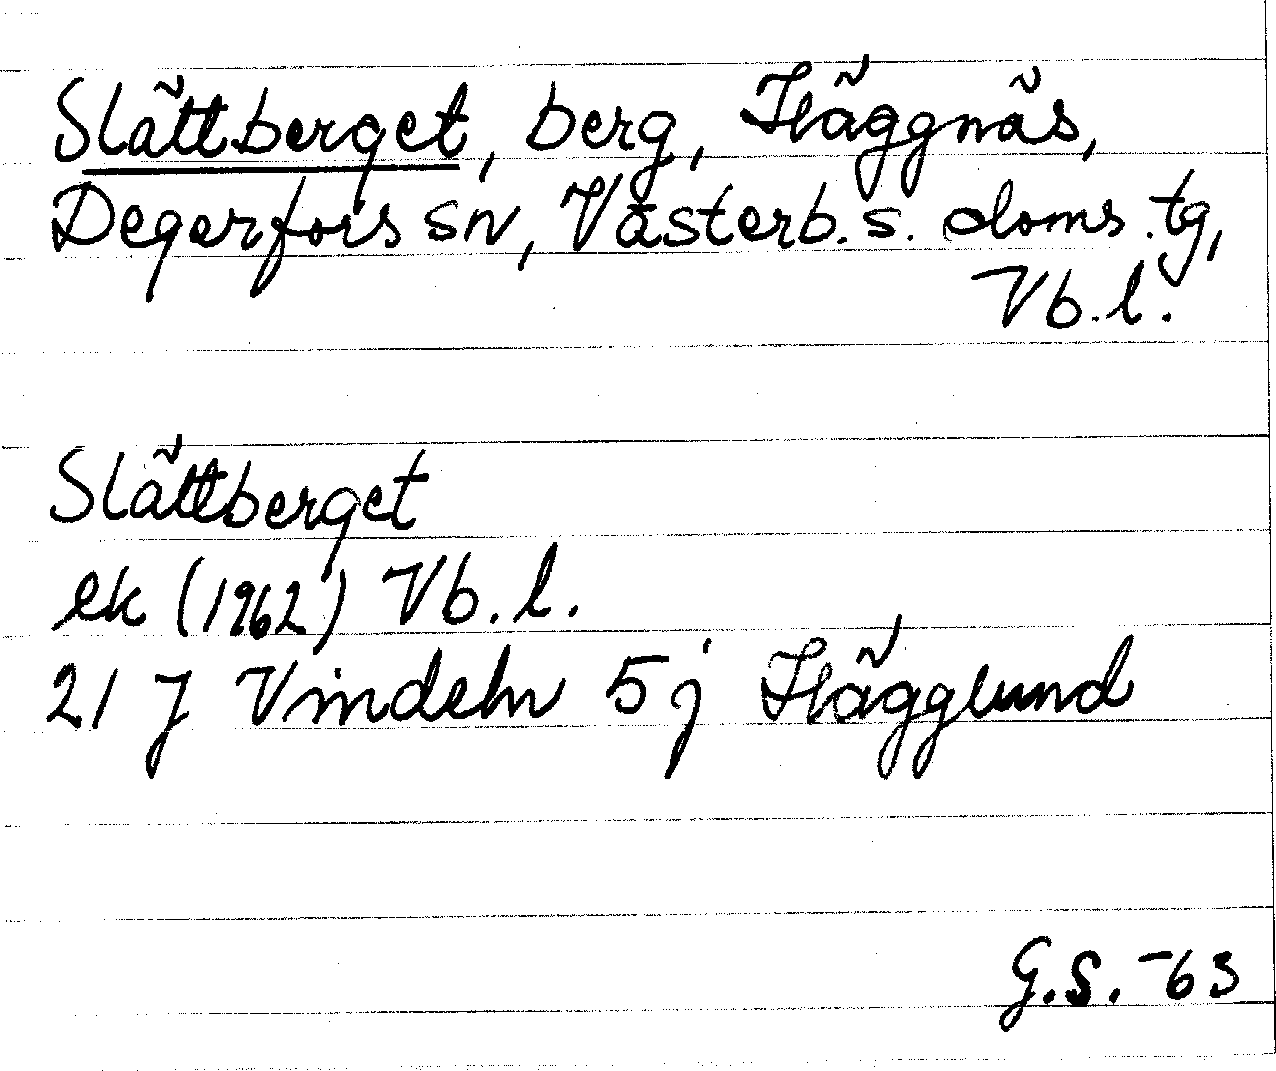 Slättberget, berg, Häggnäs,
Degerfors sn, Västerb. s. doms. tg,
Vb. l.
Slättberget
ek (1962) Vb. l.
21 J Vindeln 5 j Hägglund
G.S. -63